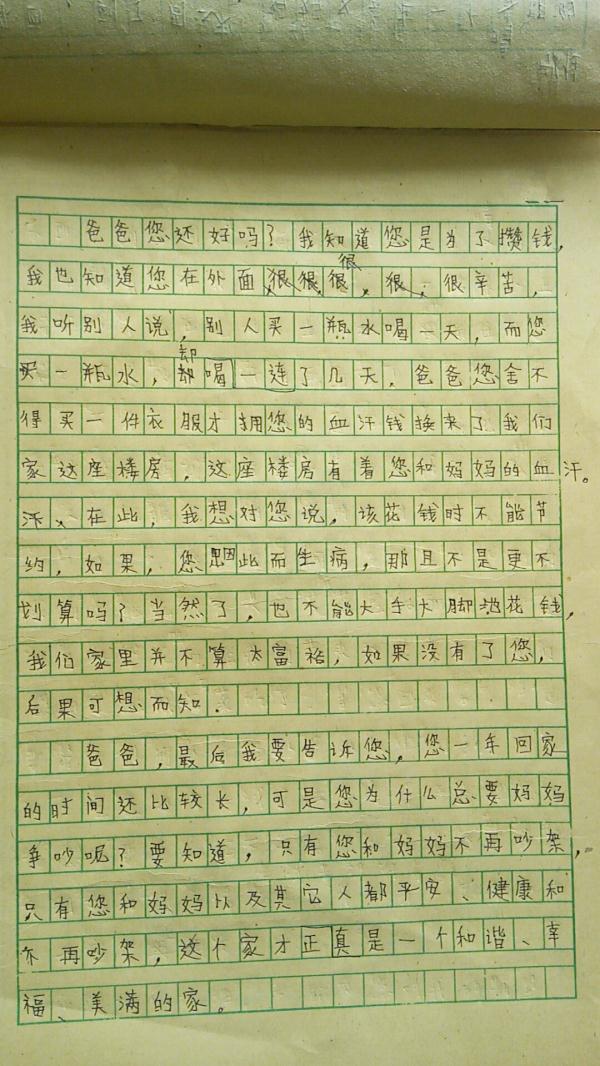 爸爸您还好吗？我知道您是为了攒钱，
我也知道您在外面，很很很，很，很辛苦，
我听别人说，别人买一瓶水喝一天，而您
买一瓶水，却喝一连了几天。爸爸您舍不
得买一件衣服才拥您的血汗钱换来了我们
家这座楼房，这座楼房有着您和妈妈的血汗。
汗、在此，我想对您说，该花钱时不能节
约，如果，您因此而生病，那且不是更不
划算吗？当然了，也不能大手大脚地花钱，
我们家里并不算太富裕，如果没有了您，
后果可想而知．
爸爸，最后我要告诉您，您一年回家
的时间还比较长，可是您为什么总要妈妈
争吵呢？要知道，只有您和妈妈不再吵架，
只有您和妈妈以及其它人都平安、健康和
不再吵架，这个家才正真是一个和谐、幸
福、美满的家。